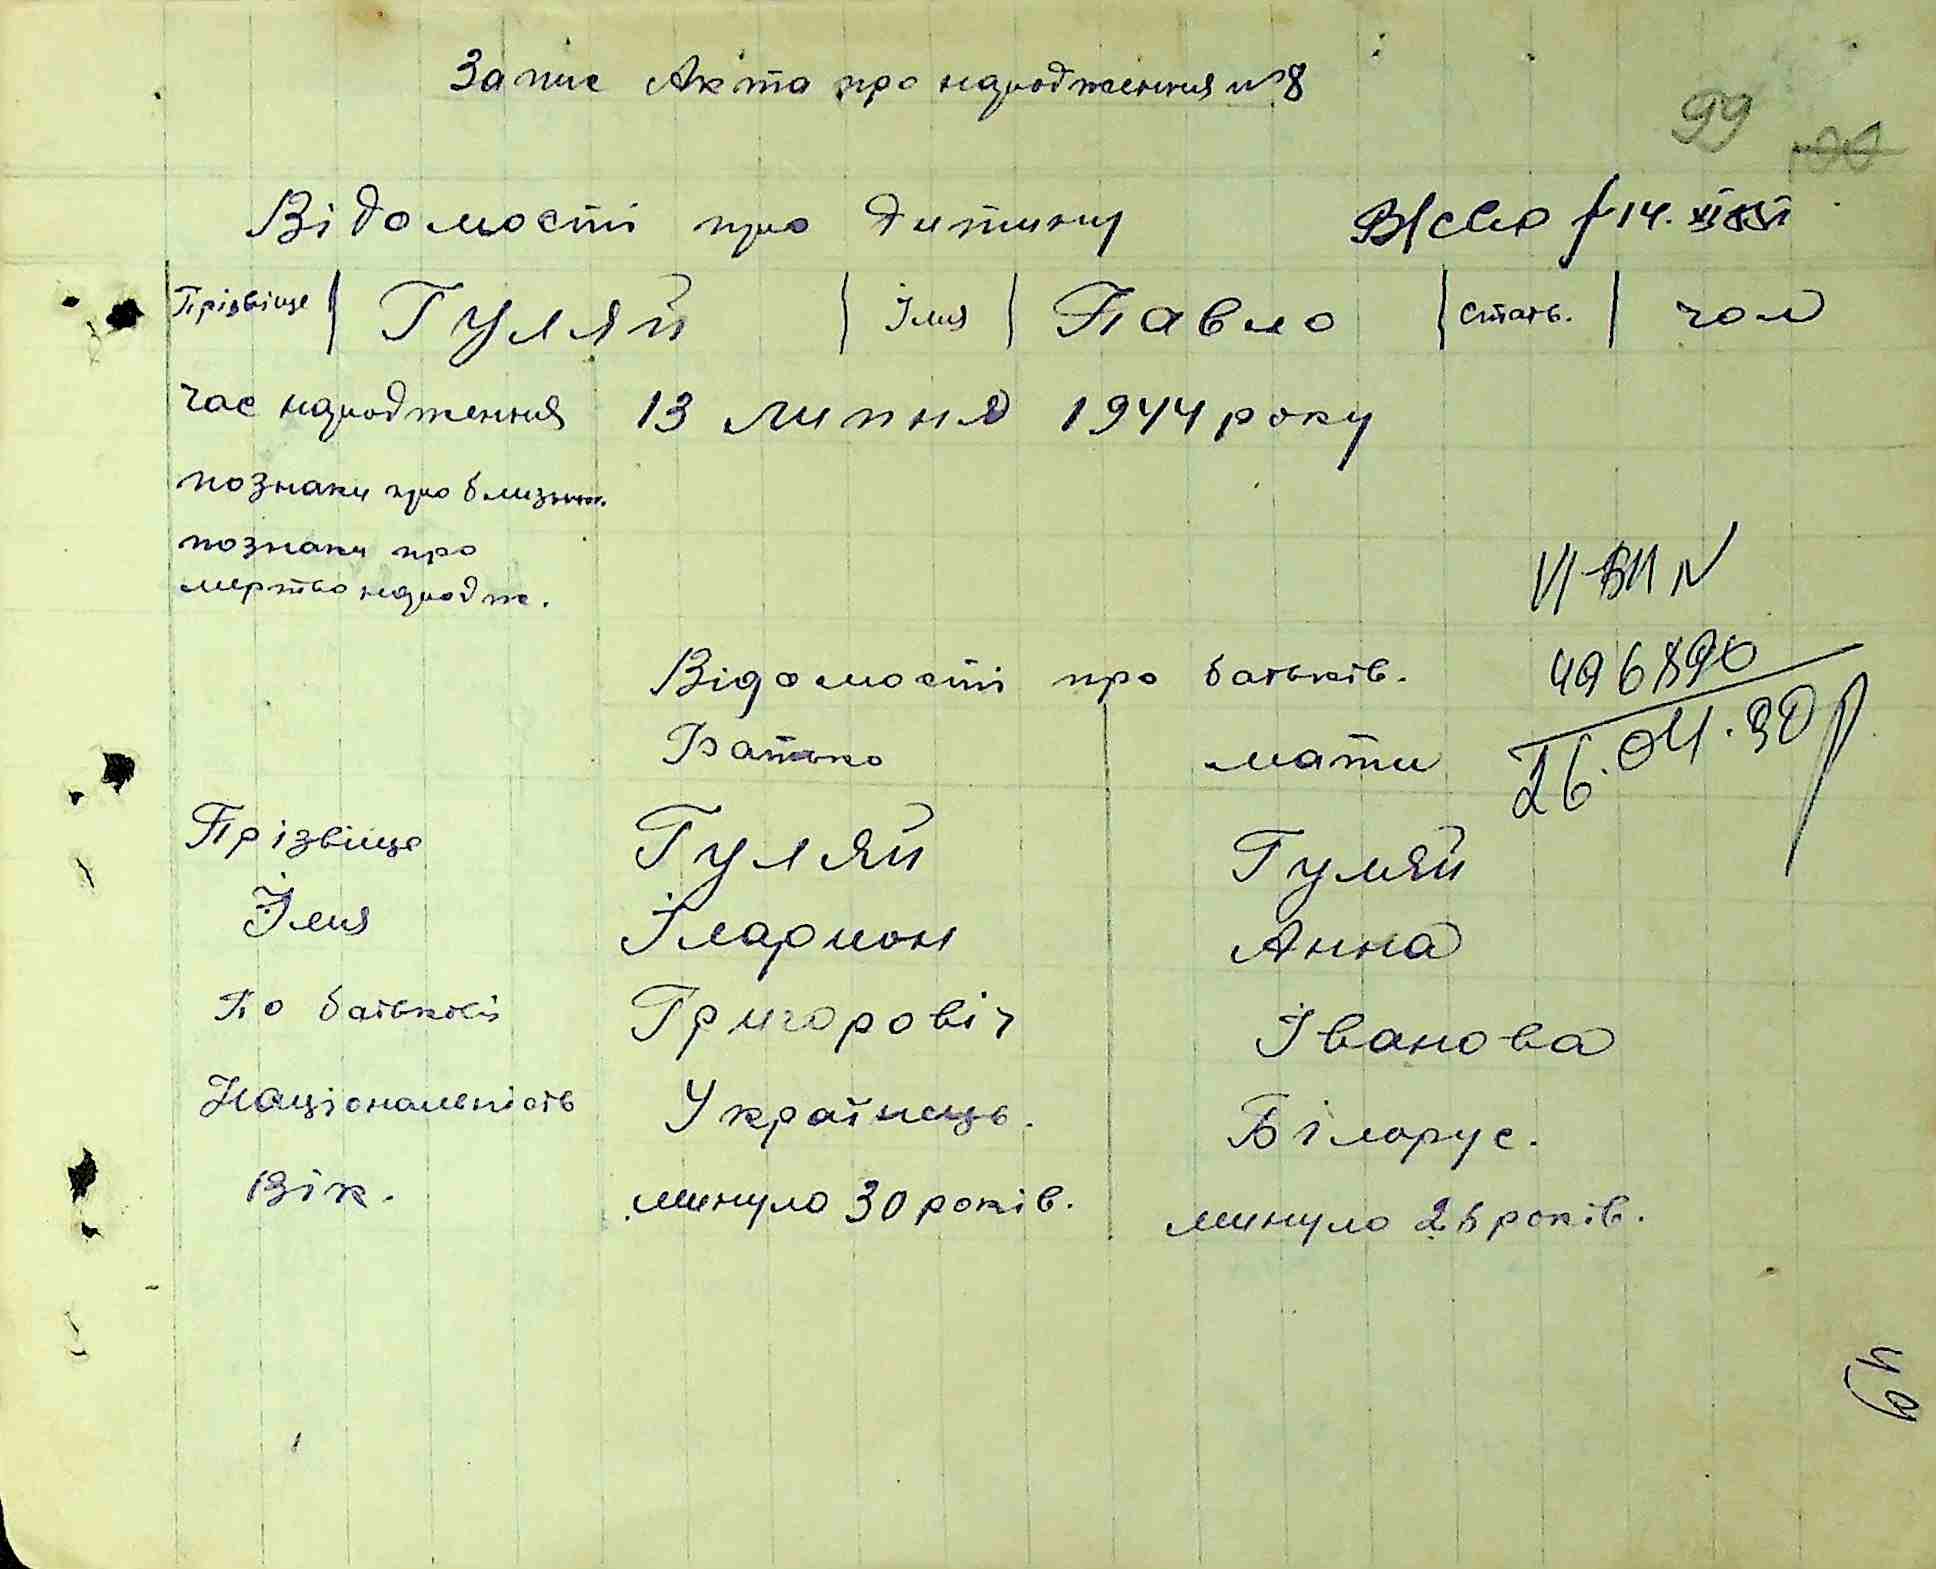 Запис Акта про народження №8
99
Відомості про дитину
Прізвіще | Гуляй | Імя | Павло | стать. | чол
час народження 13 липня 1944 року
познаки про близнюк.
познаки про
мертво народж.
II-БК №
496890
26.04.90р
Відомості про батьків.
Батько мати
Прізвіще Гуляй Гуляй
Імя Іларион Анна
По батькові Григоровіч Іванова
Національність Українець. Білорус.
Вік. минуло 30 років. минуло 26 років.
49